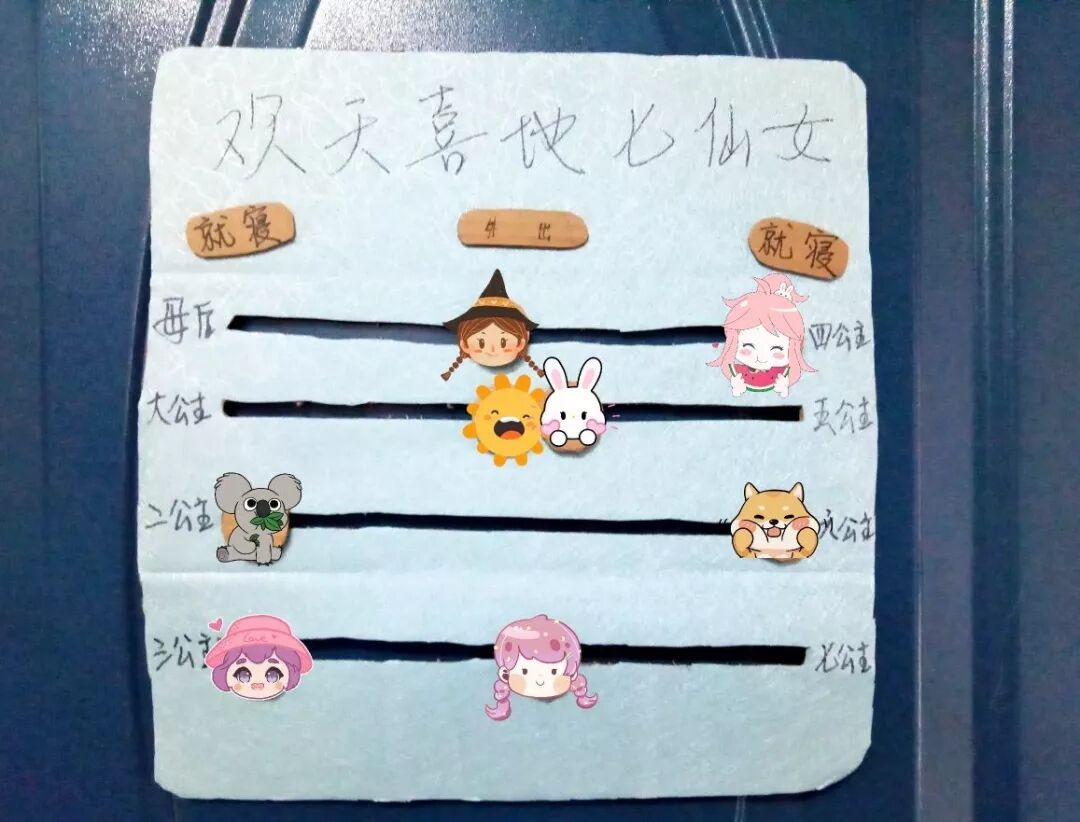 欢天喜地七仙女
就寝 外出 就寝
母后 四公主
大公主 五公主
二公主 六公主
三公主 七公主
Love